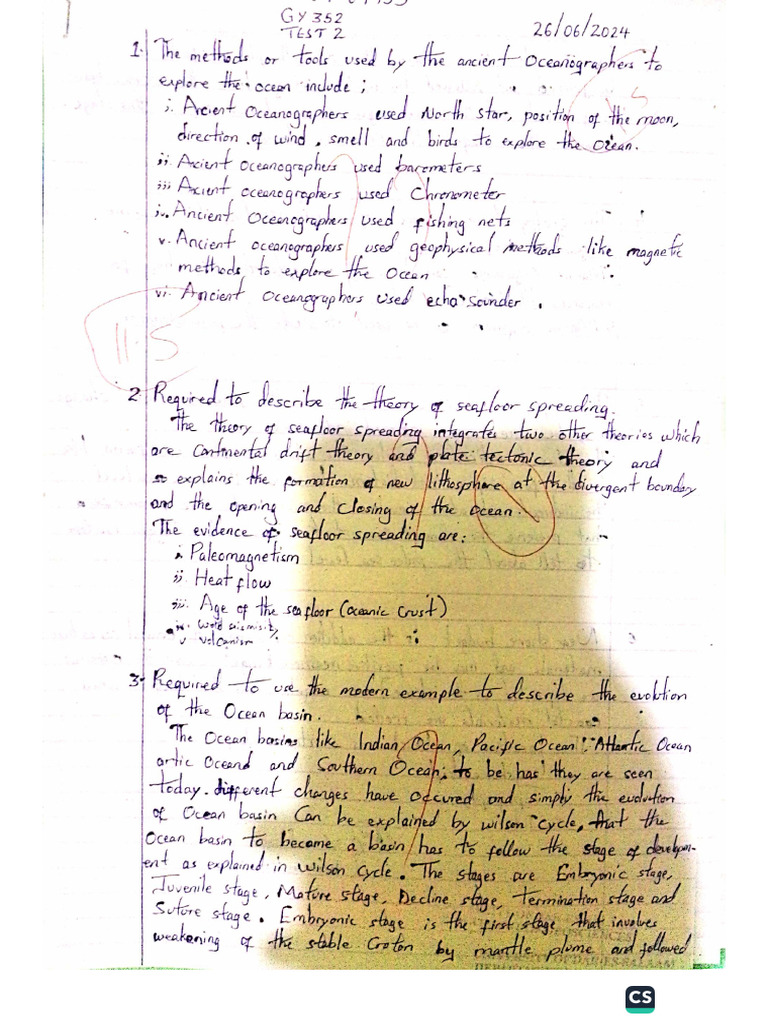 GY 352
TEST 2
26/06/2024
1. The methods or tools used by the ancient Oceanographers to
explore the ocean include;
i. Arcient Oceanographers used North star, position of the moon,
direction of wind, smell and birds to explore the Ocean.
ii. Axcient Oceanographers used barometers
iii Axcient oceanographers used Chronometer
iv. Ancient Oceanographers used fishing nets
v. Ancient oceanographers used geophysical methods like magnetic
methods to explore the Ocean
vi. Ancient Oceanographers used echo sounder.
11.5
2 Required to describe the theory of seafloor spreading.
The theory of seafloor spreading integrates two other theories which
are Continental drift theory and plate tectonic theory and
so explains the formation of new lithosphere at the divergent boundary
and the opening and closing of the ocean.
The evidence of seafloor spreading are:
i. Paleomagnetism
ii. Heat flow
iii. Age of the seafloor (oceanic crust)
iv. word seismisity
v volcanism
3. Required to use the modern example to describe the evolution
of the Ocean basin.
The Ocean basins like Indian Ocean, Pacific Ocean, Atlantic Ocean
artic Oceand and Southern Ocean, to be has they are seen
today. different changes have occured and simply the evolution
of Ocean basin Can be explained by wilson cycle, that the
Ocean basin to become a basin has to follow the stage of develepm-
ent as explained in Wilson Cycle. The stages are Embryonic stage,
Juvenile stage, Mature stage, Decline stage, Termination stage and
Suture stage. Embryonic stage is the first stage that involves
weakening of the stable Craton by mantle plume and followed
CS